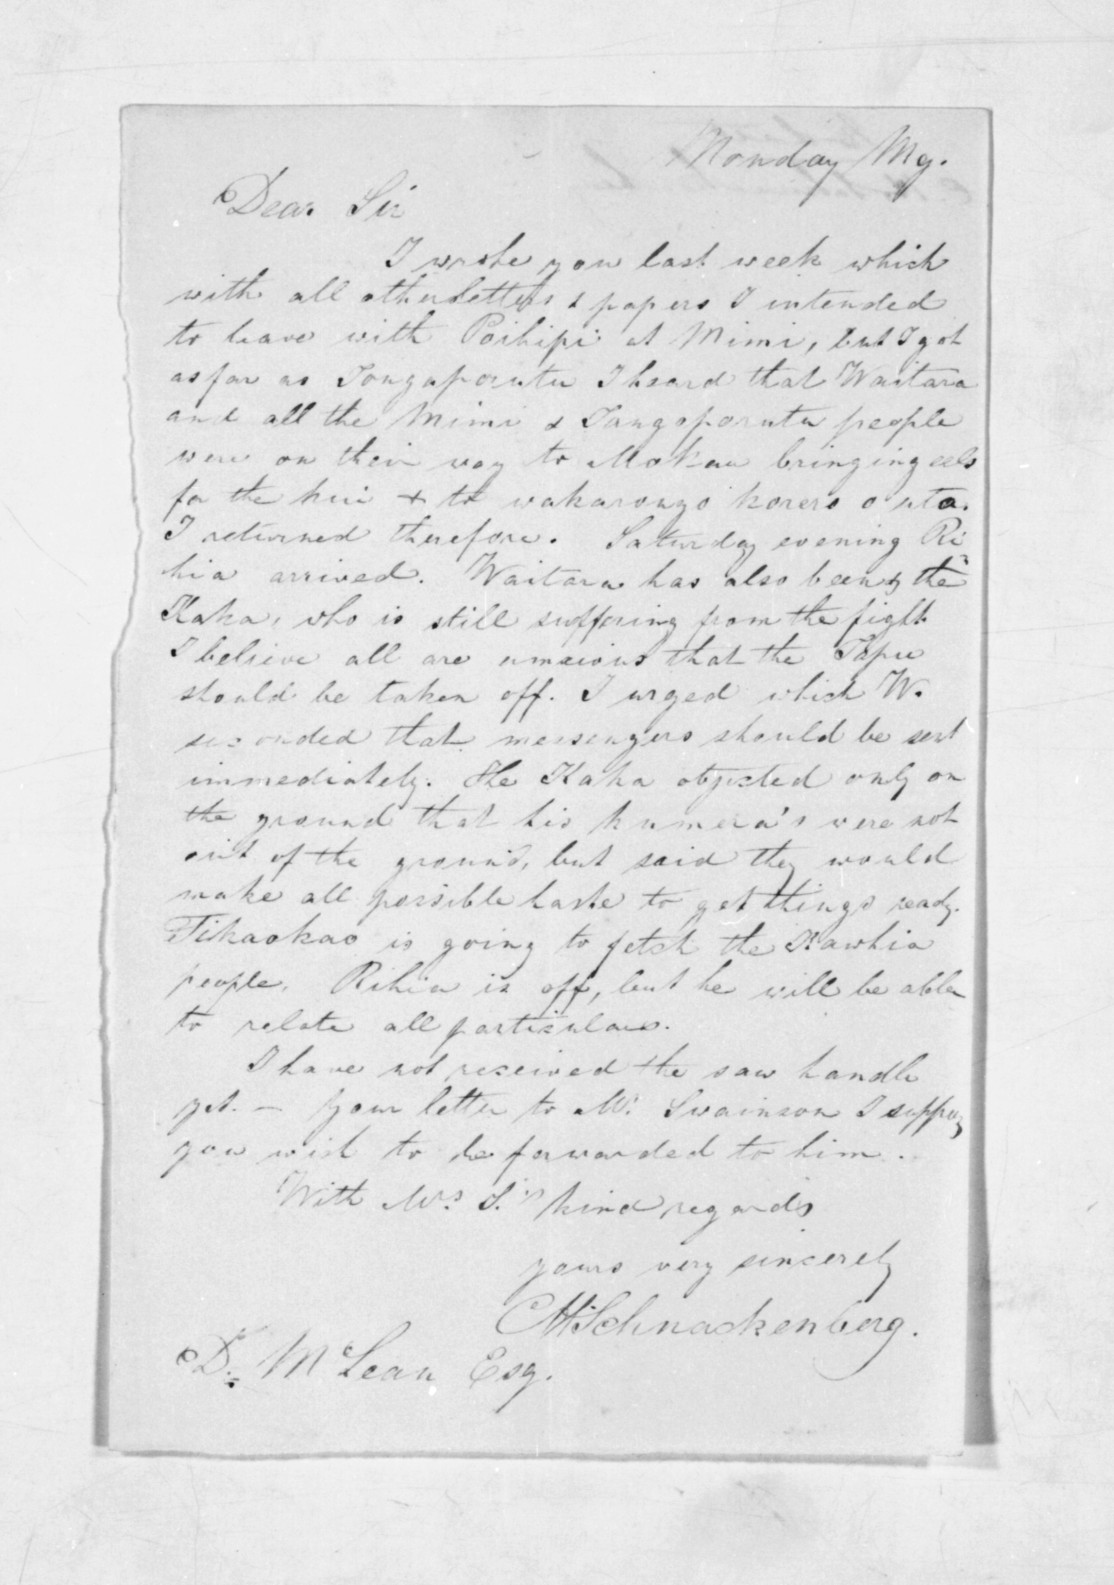 Monday Mg.
Dear Sir
I wrote you last week which
with all other letters & papers I intended
to leave with Poihipi at Mimi, but I got
as far as Tongaporutu I heard that Waitara
and all the Mimi & Tangoporutu people
were on their way to Mokau bringing eels
for the hui + to wakarongo korero o uta.
I returned therefore. Saturday evening Ri
hia arrived. Waitara has also been & the
Kaka, who is still suffering from the fight
I believe all are anxious that the Tapu
should be taken off. I urged which W.
seconded that messengers should be sent
immediately. He Kaka objected only on
the ground that his kumera's were not
out of the ground, but said they would
make all possible haste to get things ready.
Tikaokao is going to fetch the Kawhia
people. Rihia is off, but he will be able
to relate all particulars.
I have not received the saw handle
yet. — Your letter to Mr. Swainson I suppose
you wish to be forwarded to him.
With Mrs S.'s kind regards
yours very sincerely
CHSchnackenberg.
D. McLean Esq.